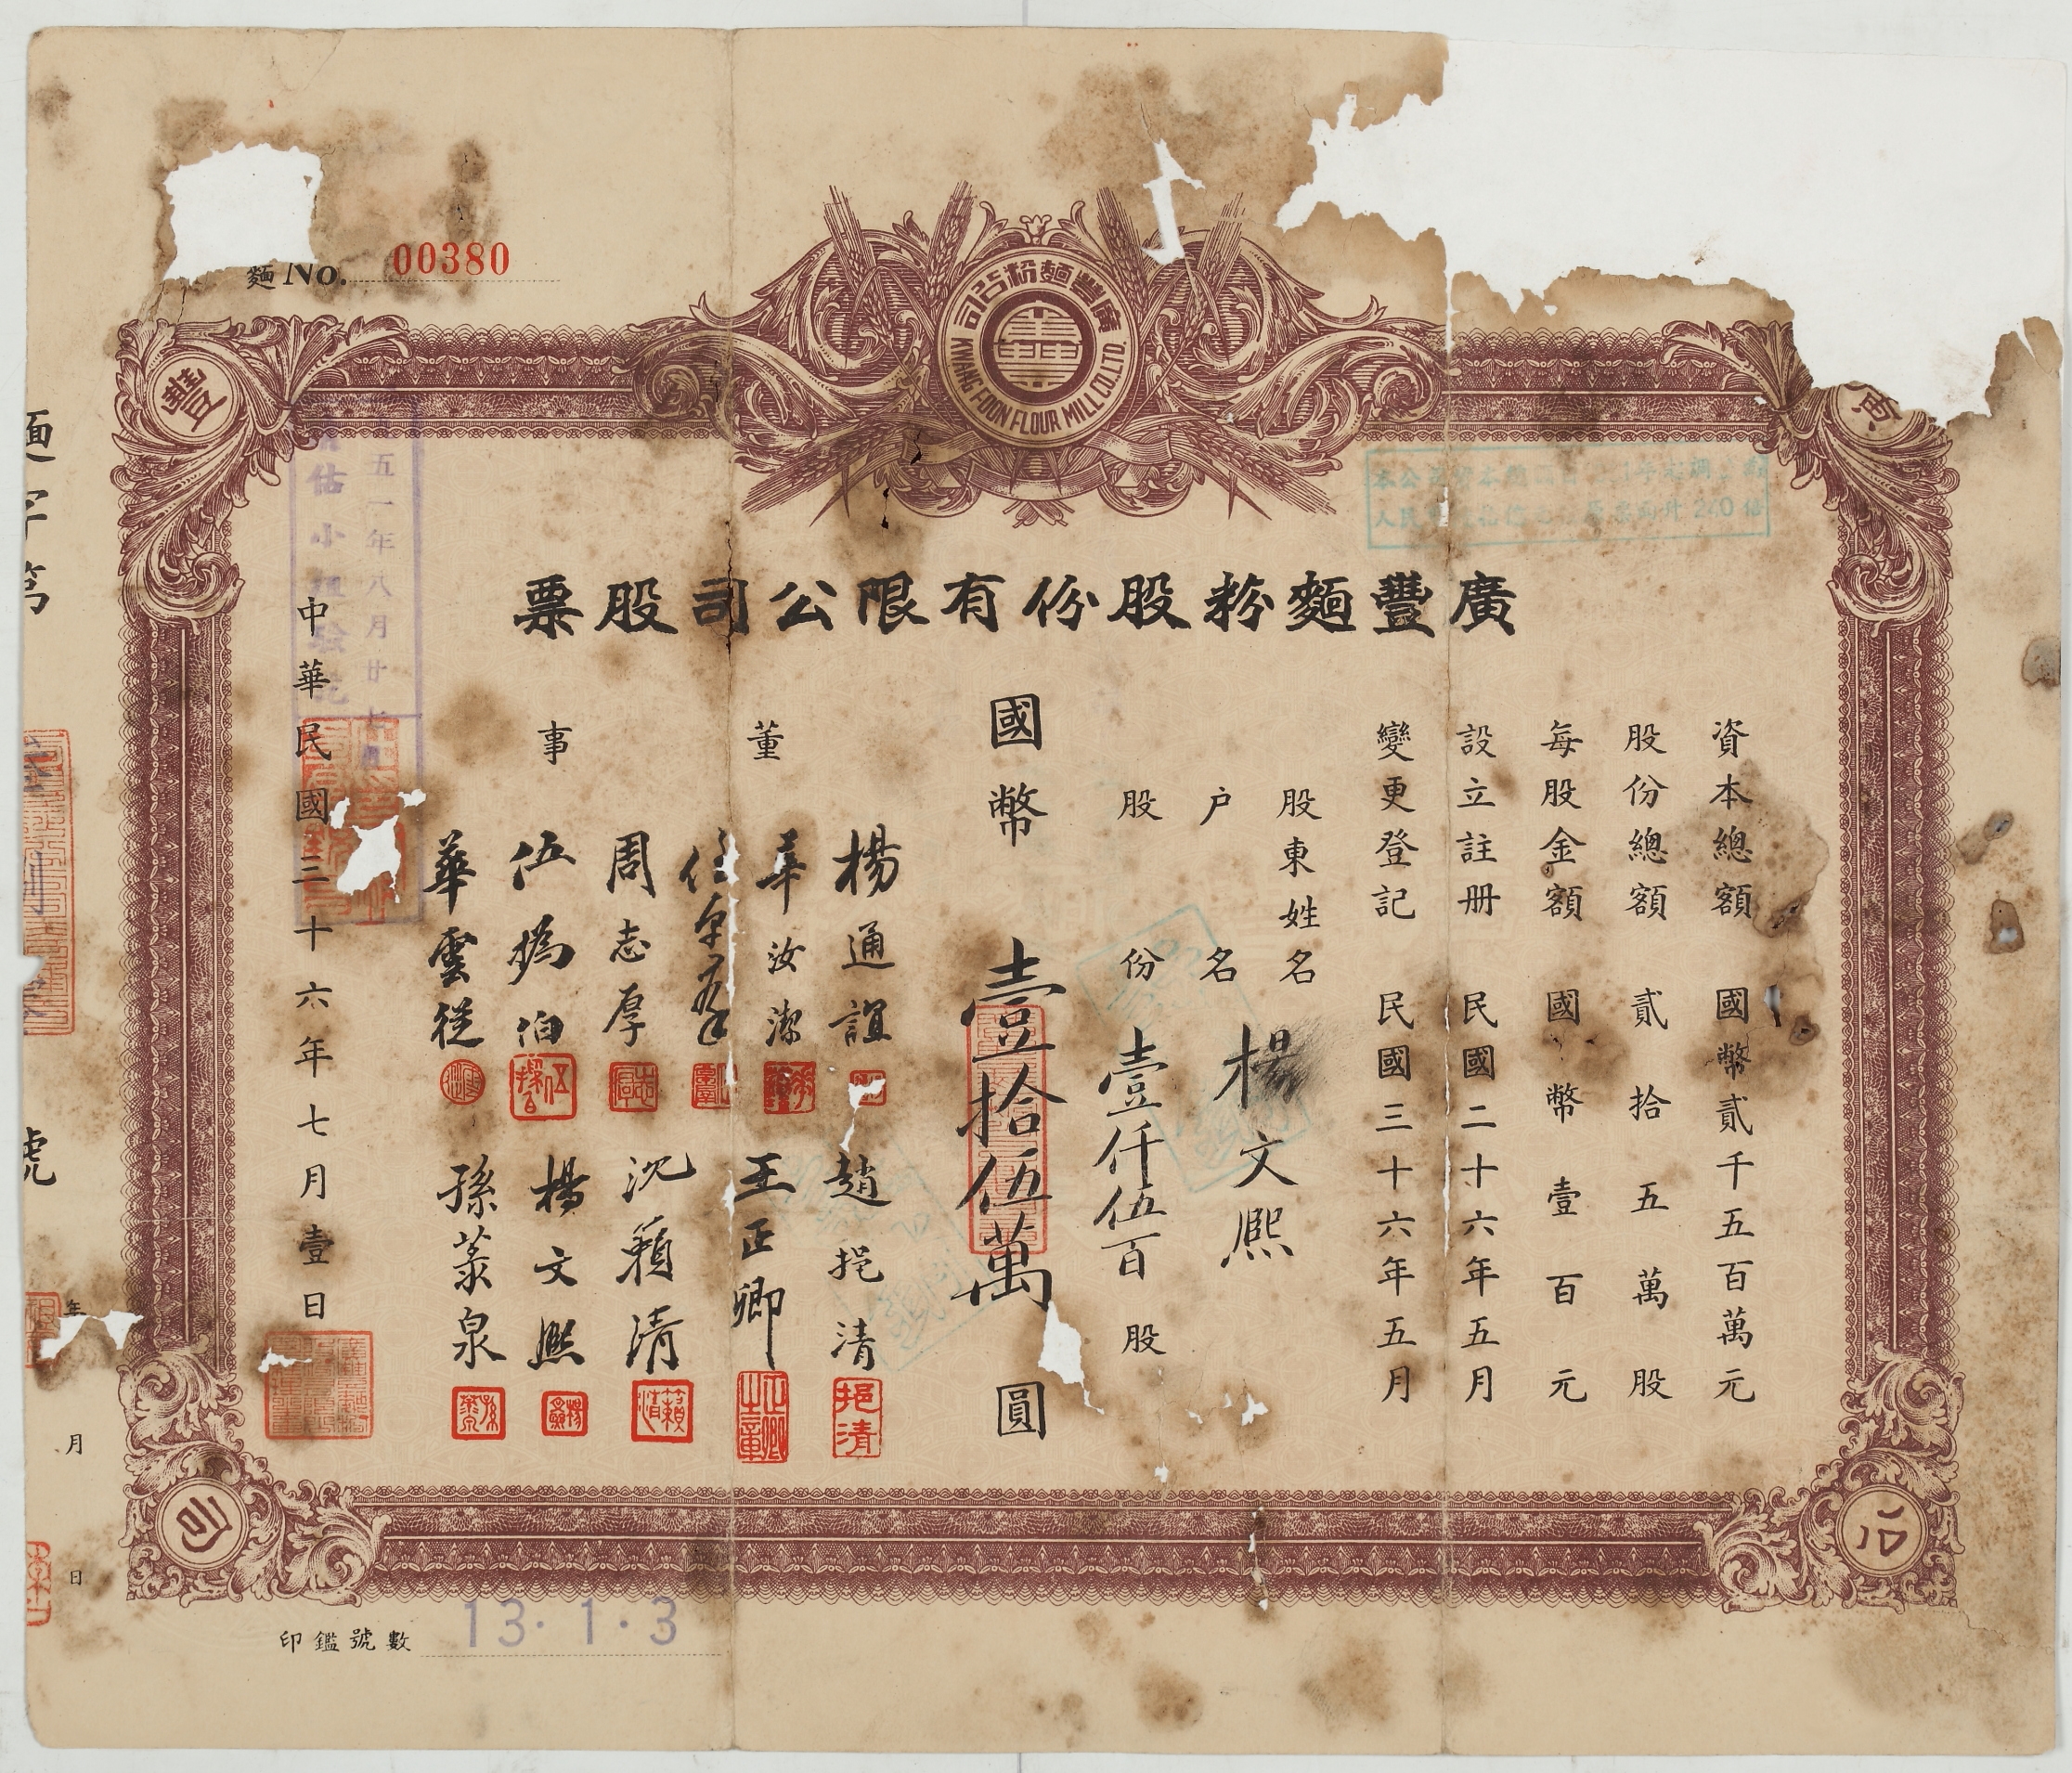 麵 No. 00380
廣豐麵粉公司
KWANG FOON FLOUR MILL CO. LTD.
豐
公
司
廣豐麵粉股份有限公司股票
資本總額 國幣貳千五百萬元
股份總額 貳拾五萬股
每股金額 國幣壹百元
設立註册 民國二十六年五月
變更登記 民國三十六年五月
股東姓名
戶名 楊文熙
股份 壹仟伍百股
國幣 壹拾伍萬 圓
董事
楊通誼
華汝潔
周志厚
華雲從
趙挹清
挹清
王正卿
正卿之章
沈籟清
籟清
楊文熙
孫蔡泉
中華民國三十六年七月壹日
五一年八月廿
估小組驗
240倍
麵字第
號
年
月
日
印鑑號數 13·1·3